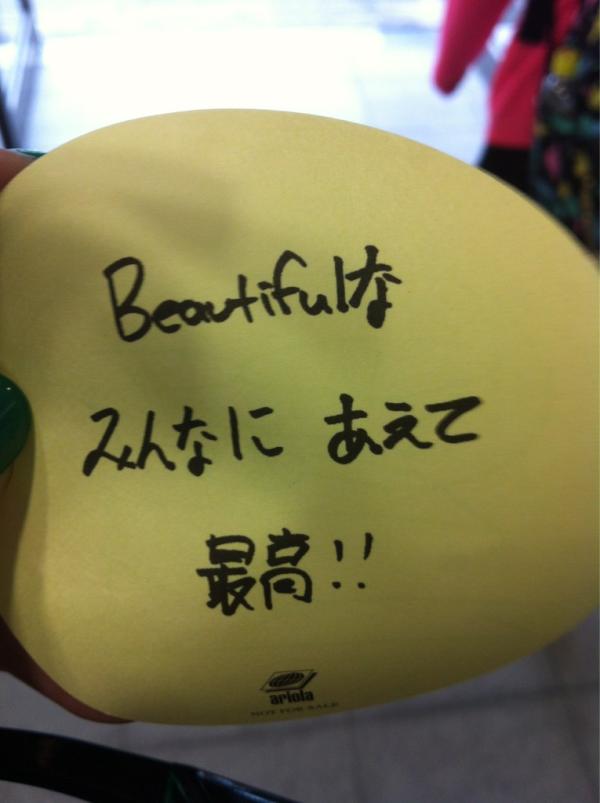 Beautifulな
みんなに あえて
最高!!
ariola
NOT FOR SALE